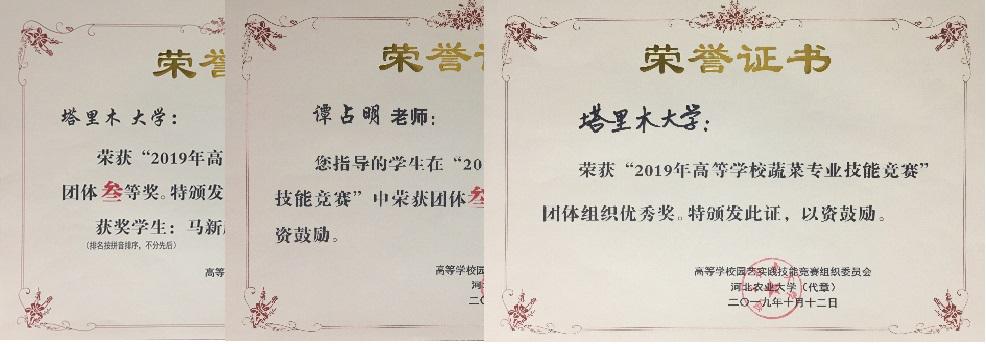 荣誉
塔里木大学：
荣获“2019年高
团体叁等奖。特颁发
获奖学生：马新
（排名按拼音排序，不分先后）
高等
荣誉
谭占明老师：
您指导的学生在“20
技能竞赛”中荣获团体叁
资鼓励。
高等学校园
河
二〇
荣誉证书
塔里木大学：
荣获“2019年高等学校蔬菜专业技能竞赛”
团体组织优秀奖。特颁发此证，以资鼓励。
高等学校园艺实践技能竞赛组织委员会
河北农业大学（代章）
二〇一九年十月十二日